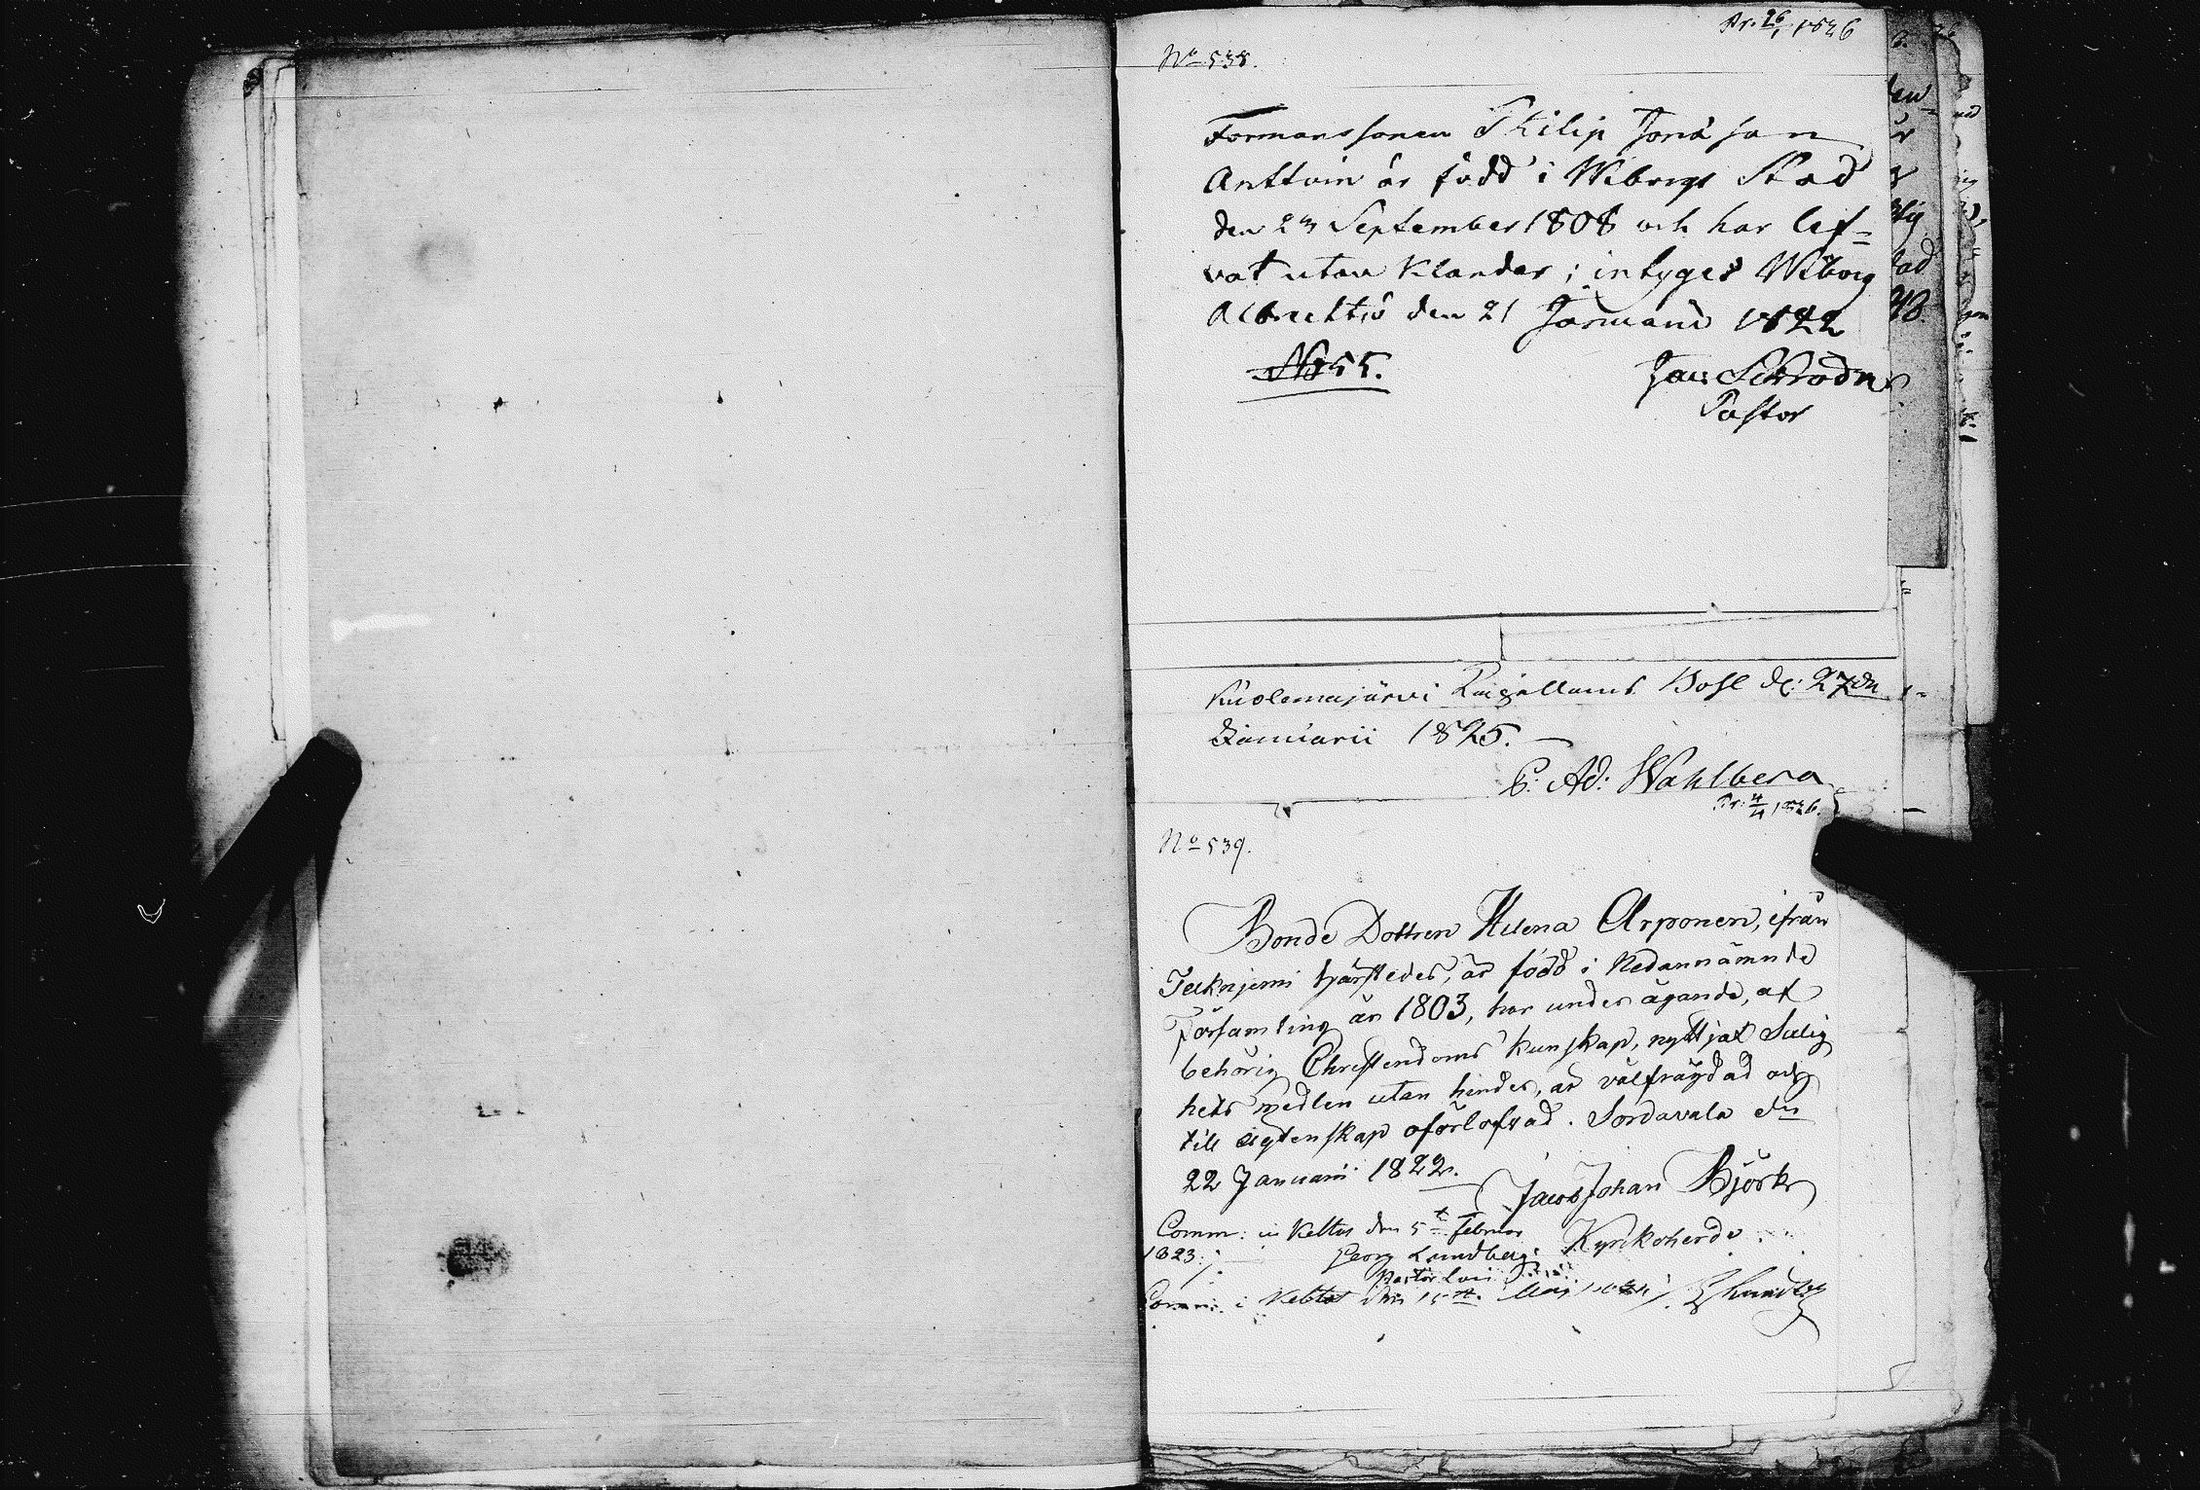 Pr. 26/1 1826
No 538.
Formanssonen Philip Jonasson
Anttoin är född i Wiborgs Stad
den 23 September 1808 och har lef=
vat utan Klander; intyges Wiborg
den 21 Januarii 1822
No 55.
Pastor
Kuolemajärvi Bohl d: 27de
Januarii 1825.
C. Ad: Wahlberg
Pr: 4/4 1826.
No 539.
Bonde Dottren Helena Arponen, ifrån
härstädes, är född i Nedannämnde
församling år 1803, har under ägande, af
behörig Christendoms kunskap, nyttjat Salig
hets medlen utan hinder, är välfrägdad och
till ägtenskap oförlofvad. Sordavala den
22 Januarii 1822.
Jacob Johan Björk
Kyrkoherde
Comm: i Keltis den 5te Februar
1823. Georg Lundberg
Pastor Loci
Comm: i Keltis den 15 Maj Lundberg